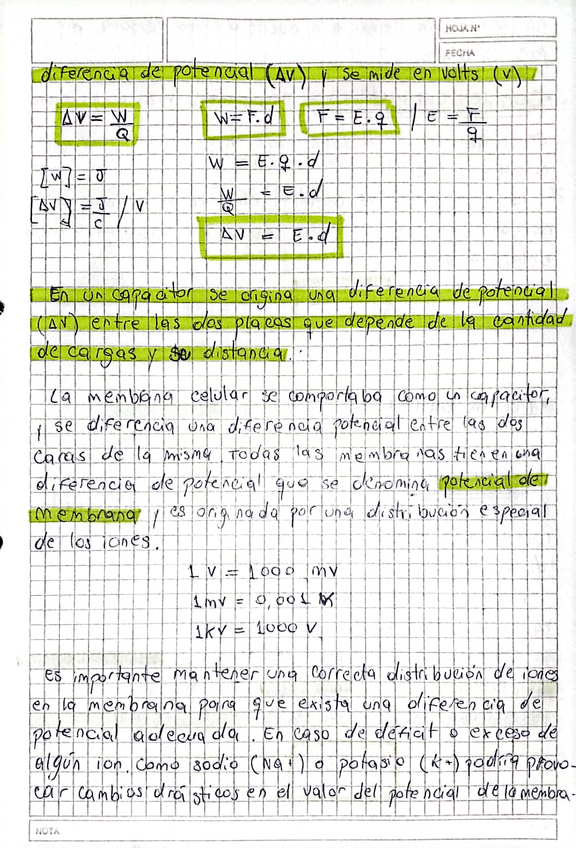 HOJA N°
FECHA
diferencia de potencial (ΔV) y se mide en volts (V)
ΔV = W/Q W = F.d F = E.q / E = F/q
[W] = J W = E.q.d
[ΔV] = J/C / V W/Q = E.d
ΔV = E.d
En un capacitor se origina una diferencia de potencial
(ΔV) entre las dos placas que depende de la cantidad
de cargas y su distancia.
La membrana celular se comportaba como un capacitor,
y se diferencia una diferencia potencial entre las dos
caras de la misma. Todas las membranas tienen una
diferencia de potencial que se denomina potencial de
membrana, es originada por una distribución especial
de los iones.
1 V = 1000 mv
1mv = 0,001
1kv = 1000 V
es importante mantener una correcta distribución de iones
en la membrana para que exista una diferencia de
potencial adecuada. En caso de déficit o exceso de
algún ion. Como sodio (Na+) o potasio (k+) podría provo-
car cambios drásticos en el valor del potencial de la membra-
NOTA